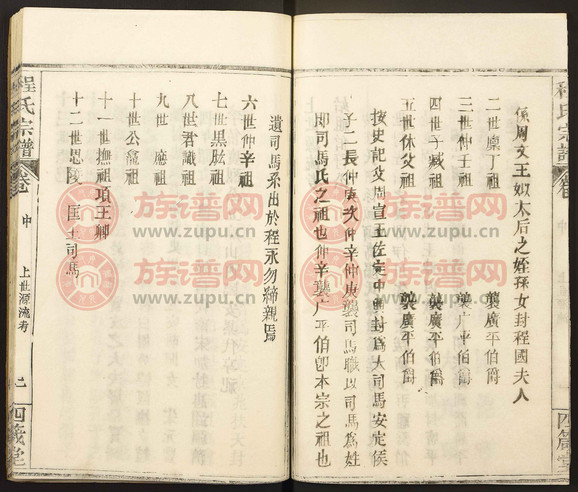 係周文王姒太后之姪孫女封程國夫人
二世禀丁祖 襲廣平伯爵
三世仲王祖 襲广平伯爵
四世子臧祖 襲廣平伯爵
五世休父祖 襲廣平伯爵
按史記攷周宣王佐定中興封爲大司馬安定侯
子二長仲庚次仲辛仲庚襲司馬職以司馬爲姓
即司馬氏之祖也仲辛襲广平伯卽本宗之祖也
程氏宗譜
卷
中
四箴堂
遺司馬系出於程永勿締親焉
六世仲辛祖
七世黑肱祖
八世君識祖
九世 廳祖
十世公竈祖
十一世撫祖項王卿
十二世思陵 匡王司馬
程氏宗譜
卷
中
上世源流考
二
四箴堂
族谱网
www.zupu.cn
族谱网
www.zupu.cn
族谱网
www.zupu.cn
族谱网
www.zupu.cn